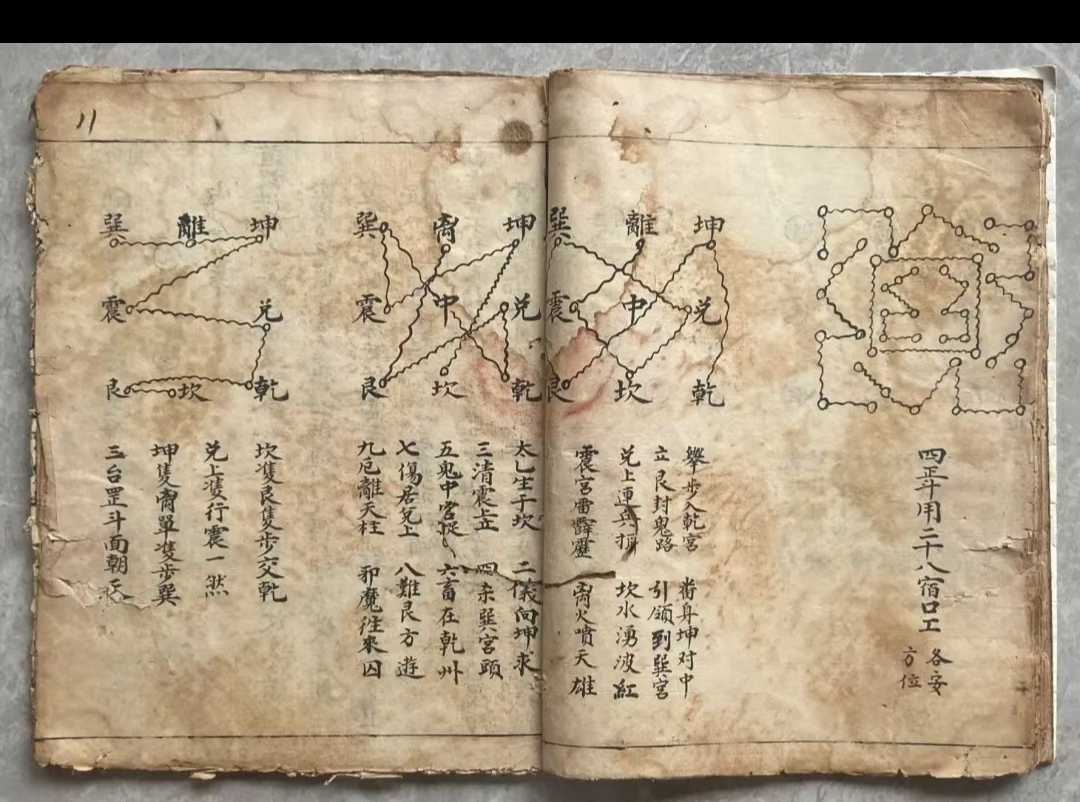 四正斗用二十八宿口工
各安
方位
坤 離 巽
兑 中 震
乾 坎 艮
舉步入乾宮 番身坤对中
立艮封鬼路 引領到巽宮
兑上連兵 坎水湧波紅
震宮雷霹靂 离火噴天雄
坤 离 巽
兑 中 震
乾 坎 艮
太乙生于坎 二儀向坤求
三清震上立 四来巽宮頭
五鬼中宮捉 六畜在乾州
七傷居兑上 八難艮方遊
九厄離天柱 邪魔往来囚
坤 離 巽
兑 震
乾 坎 艮
坎隻艮隻步交乾
兑上隻行震一然
坤隻离單隻步巽
三台罡斗面朝
11